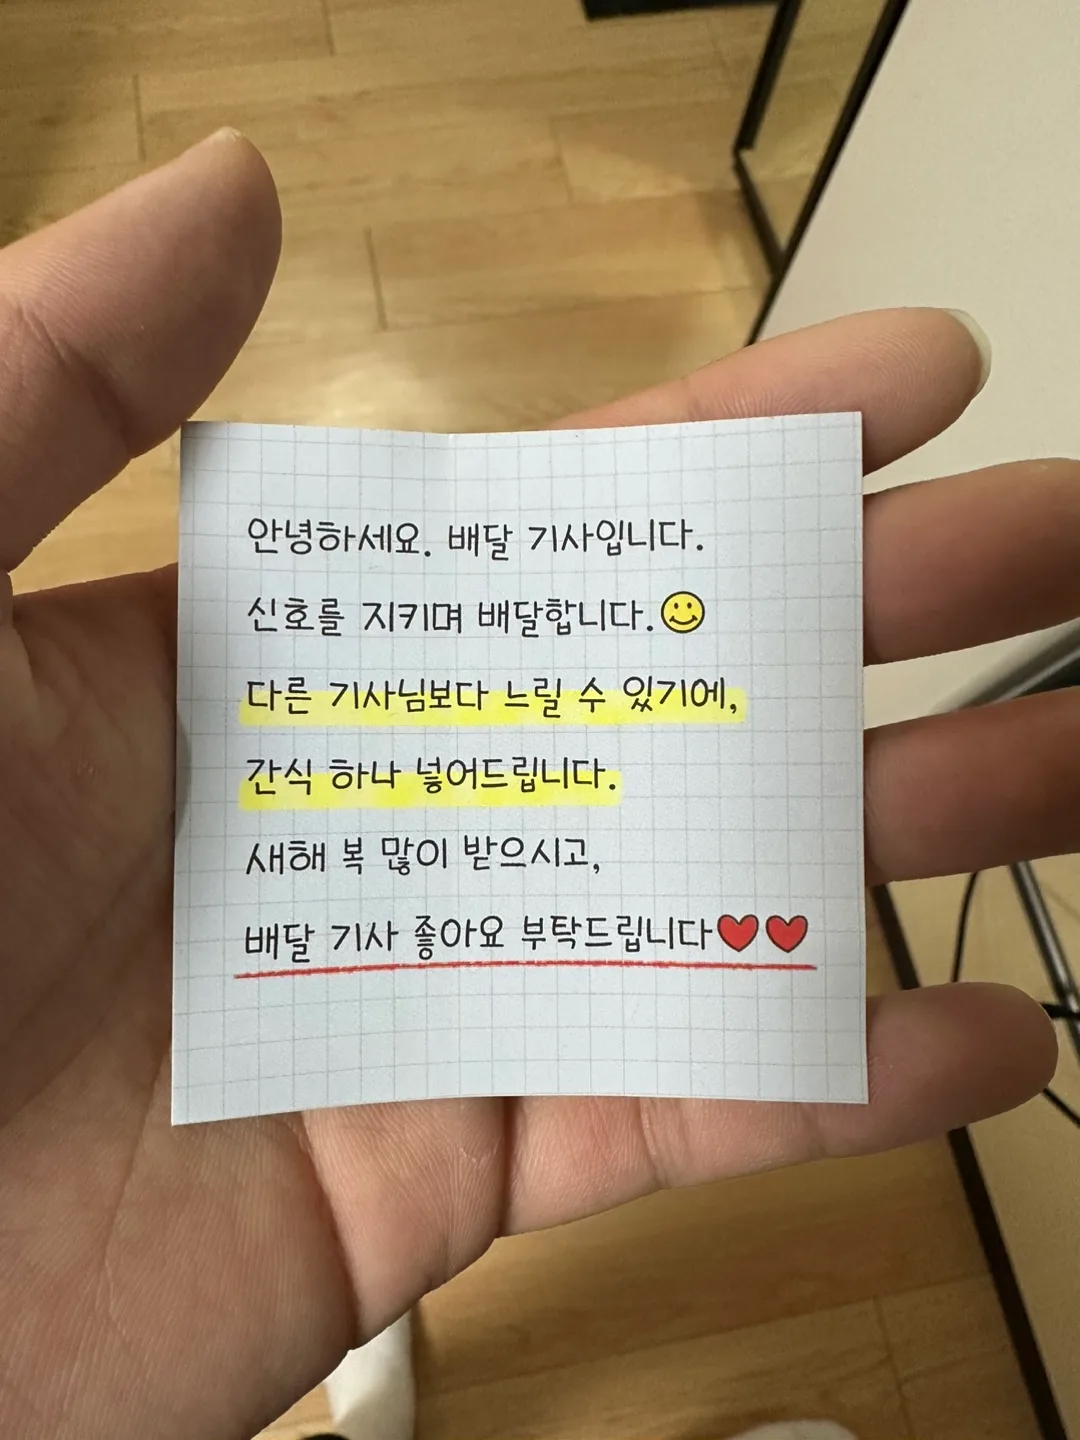 안녕하세요. 배달 기사입니다.
신호를 지키며 배달합니다.😊
다른 기사님보다 느릴 수 있기에,
간식 하나 넣어드립니다.
새해 복 많이 받으시고,
배달 기사 좋아요 부탁드립니다❤️❤️